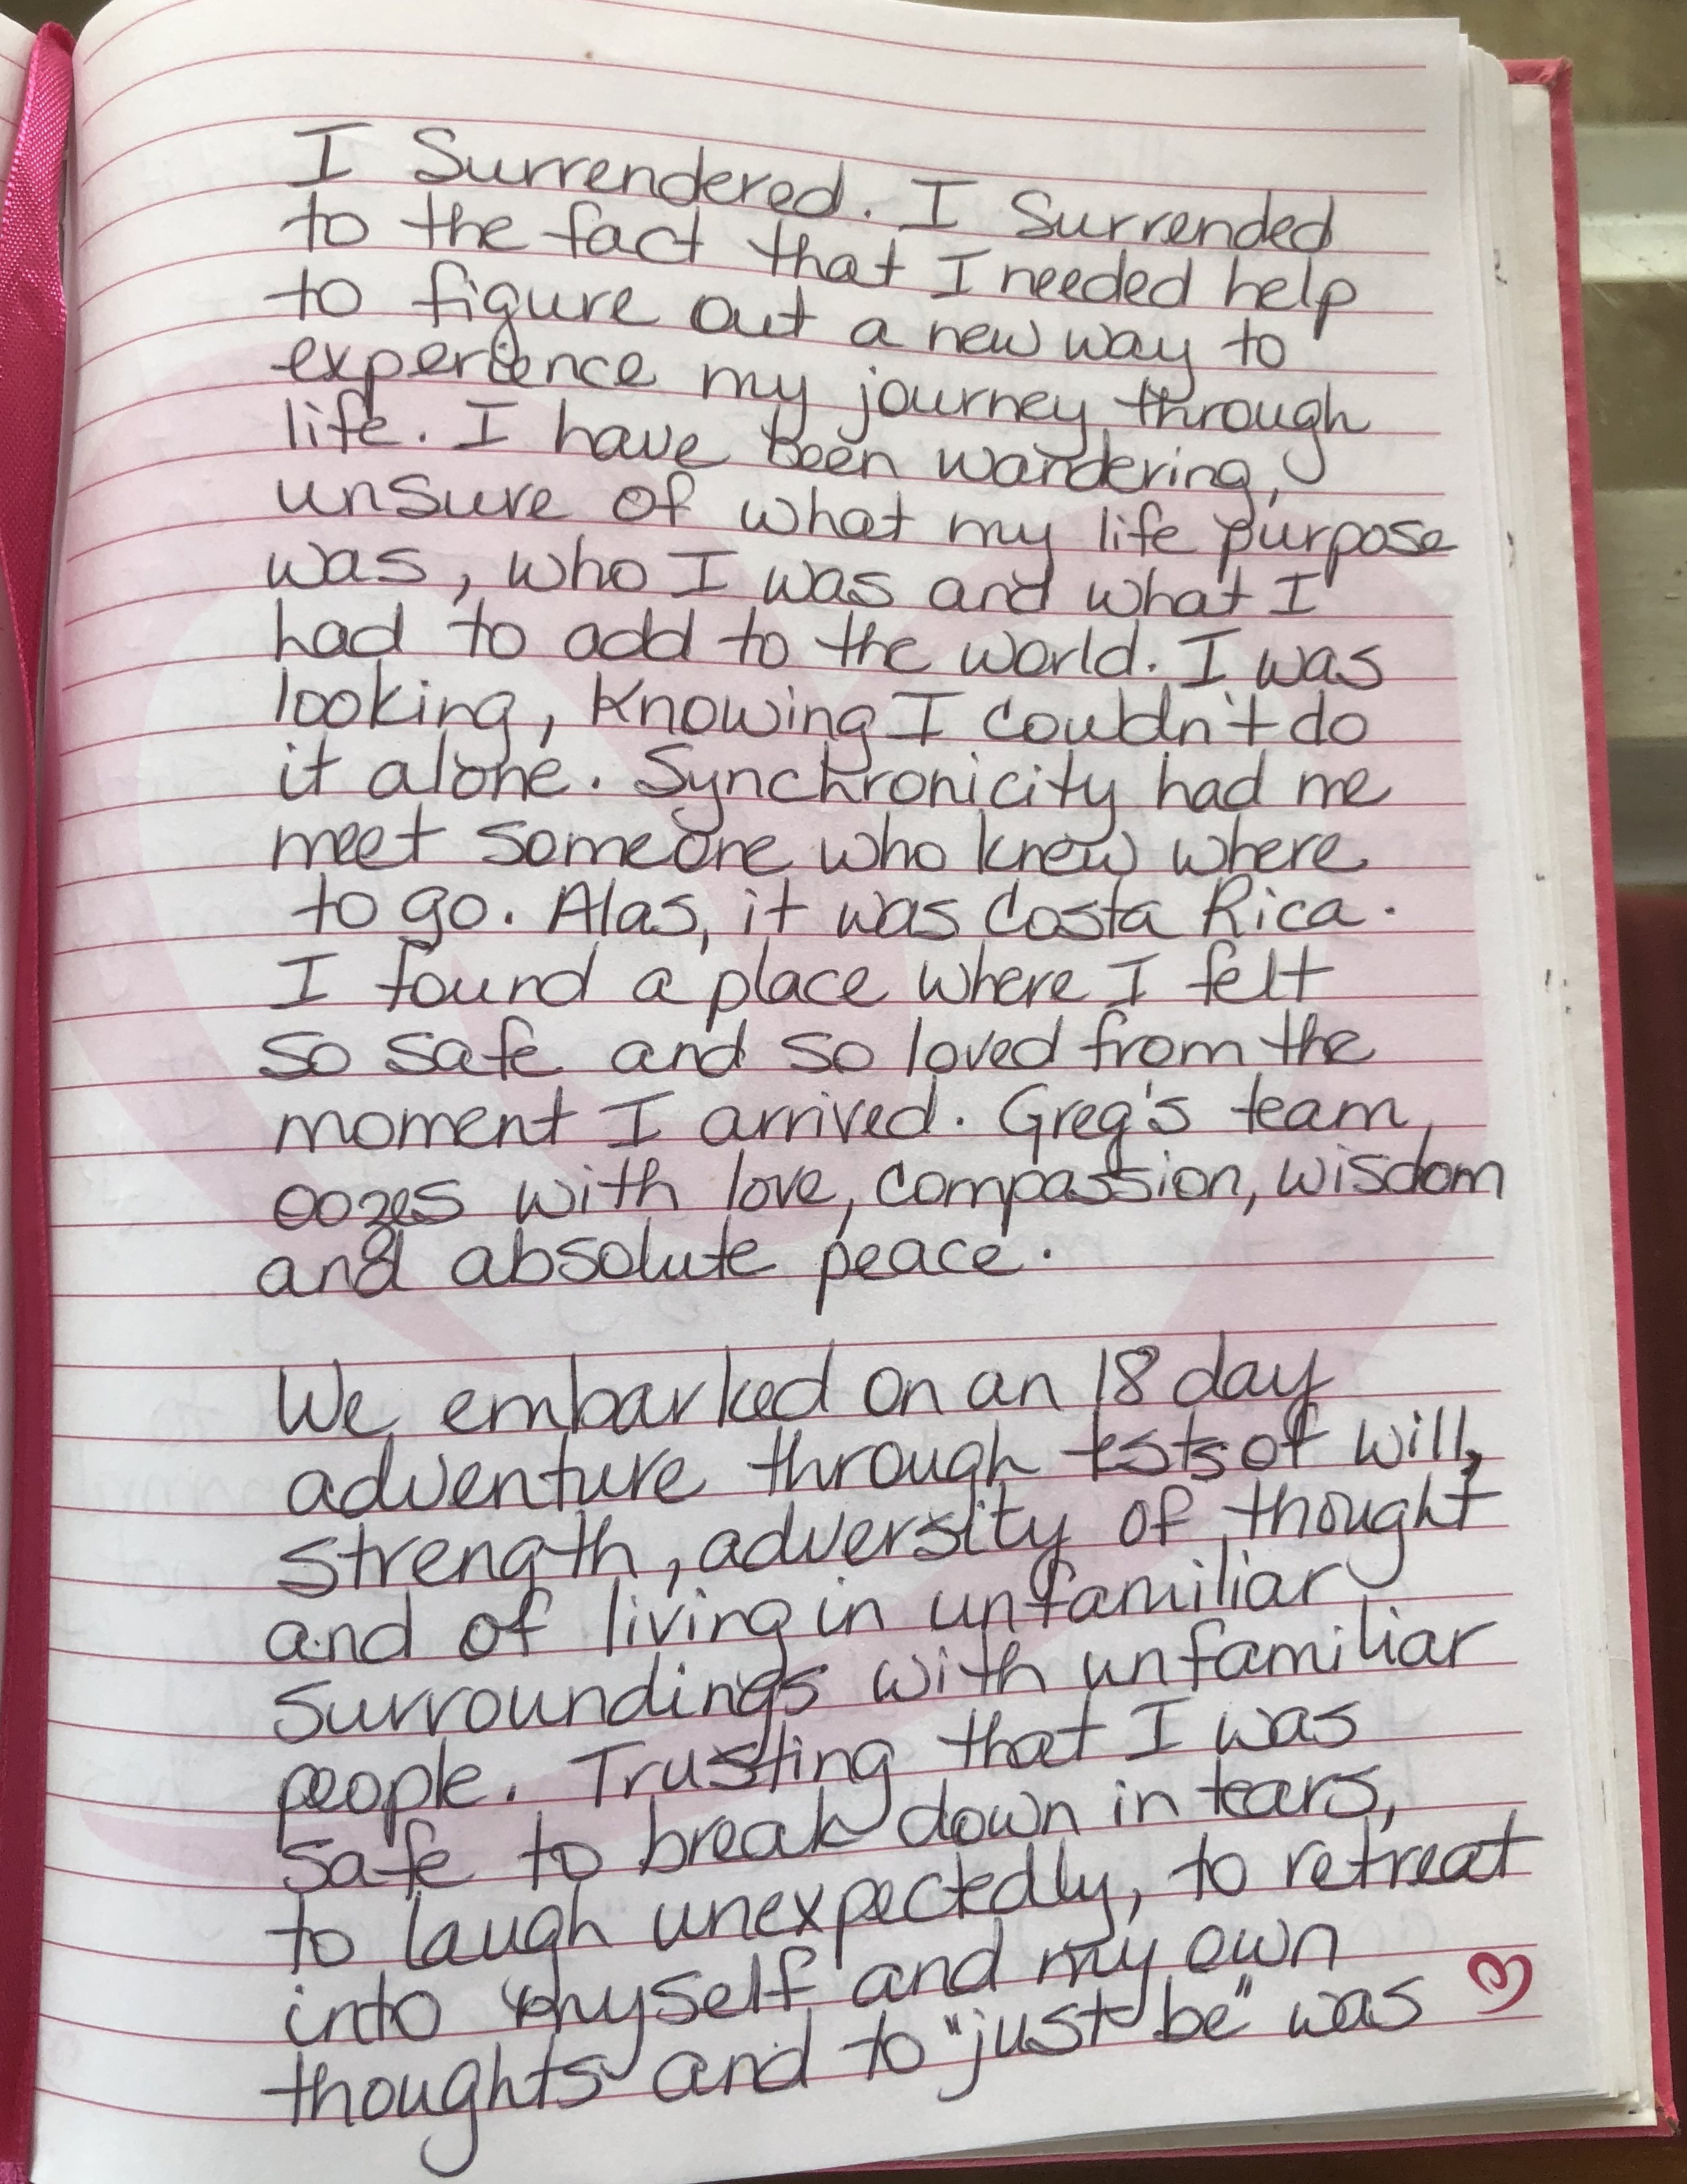 I Surrendered. I Surrended
to the fact that I needed help
to figure out a new way to
experience my journey through
life. I have been wandering,
unsure of what my life purpose
was, who I was and what I
had to add to the world. I was
looking, knowing I couldn't do
it alone. Synchronicity had me
meet someone who knew where
to go. Alas, it was Costa Rica.
I found a place where I felt
so safe and so loved from the
moment I arrived. Greg's team
oozes with love, compassion, wisdom
and absolute peace.
We embarked on an 18 day
adventure through tests of will,
strength, adversity of thought
and of living in unfamiliar
surroundings with unfamiliar
people. Trusting that I was
safe to break down in tears,
to laugh unexpectedly, to retreat
into myself and my own
thoughts and to "just be" was